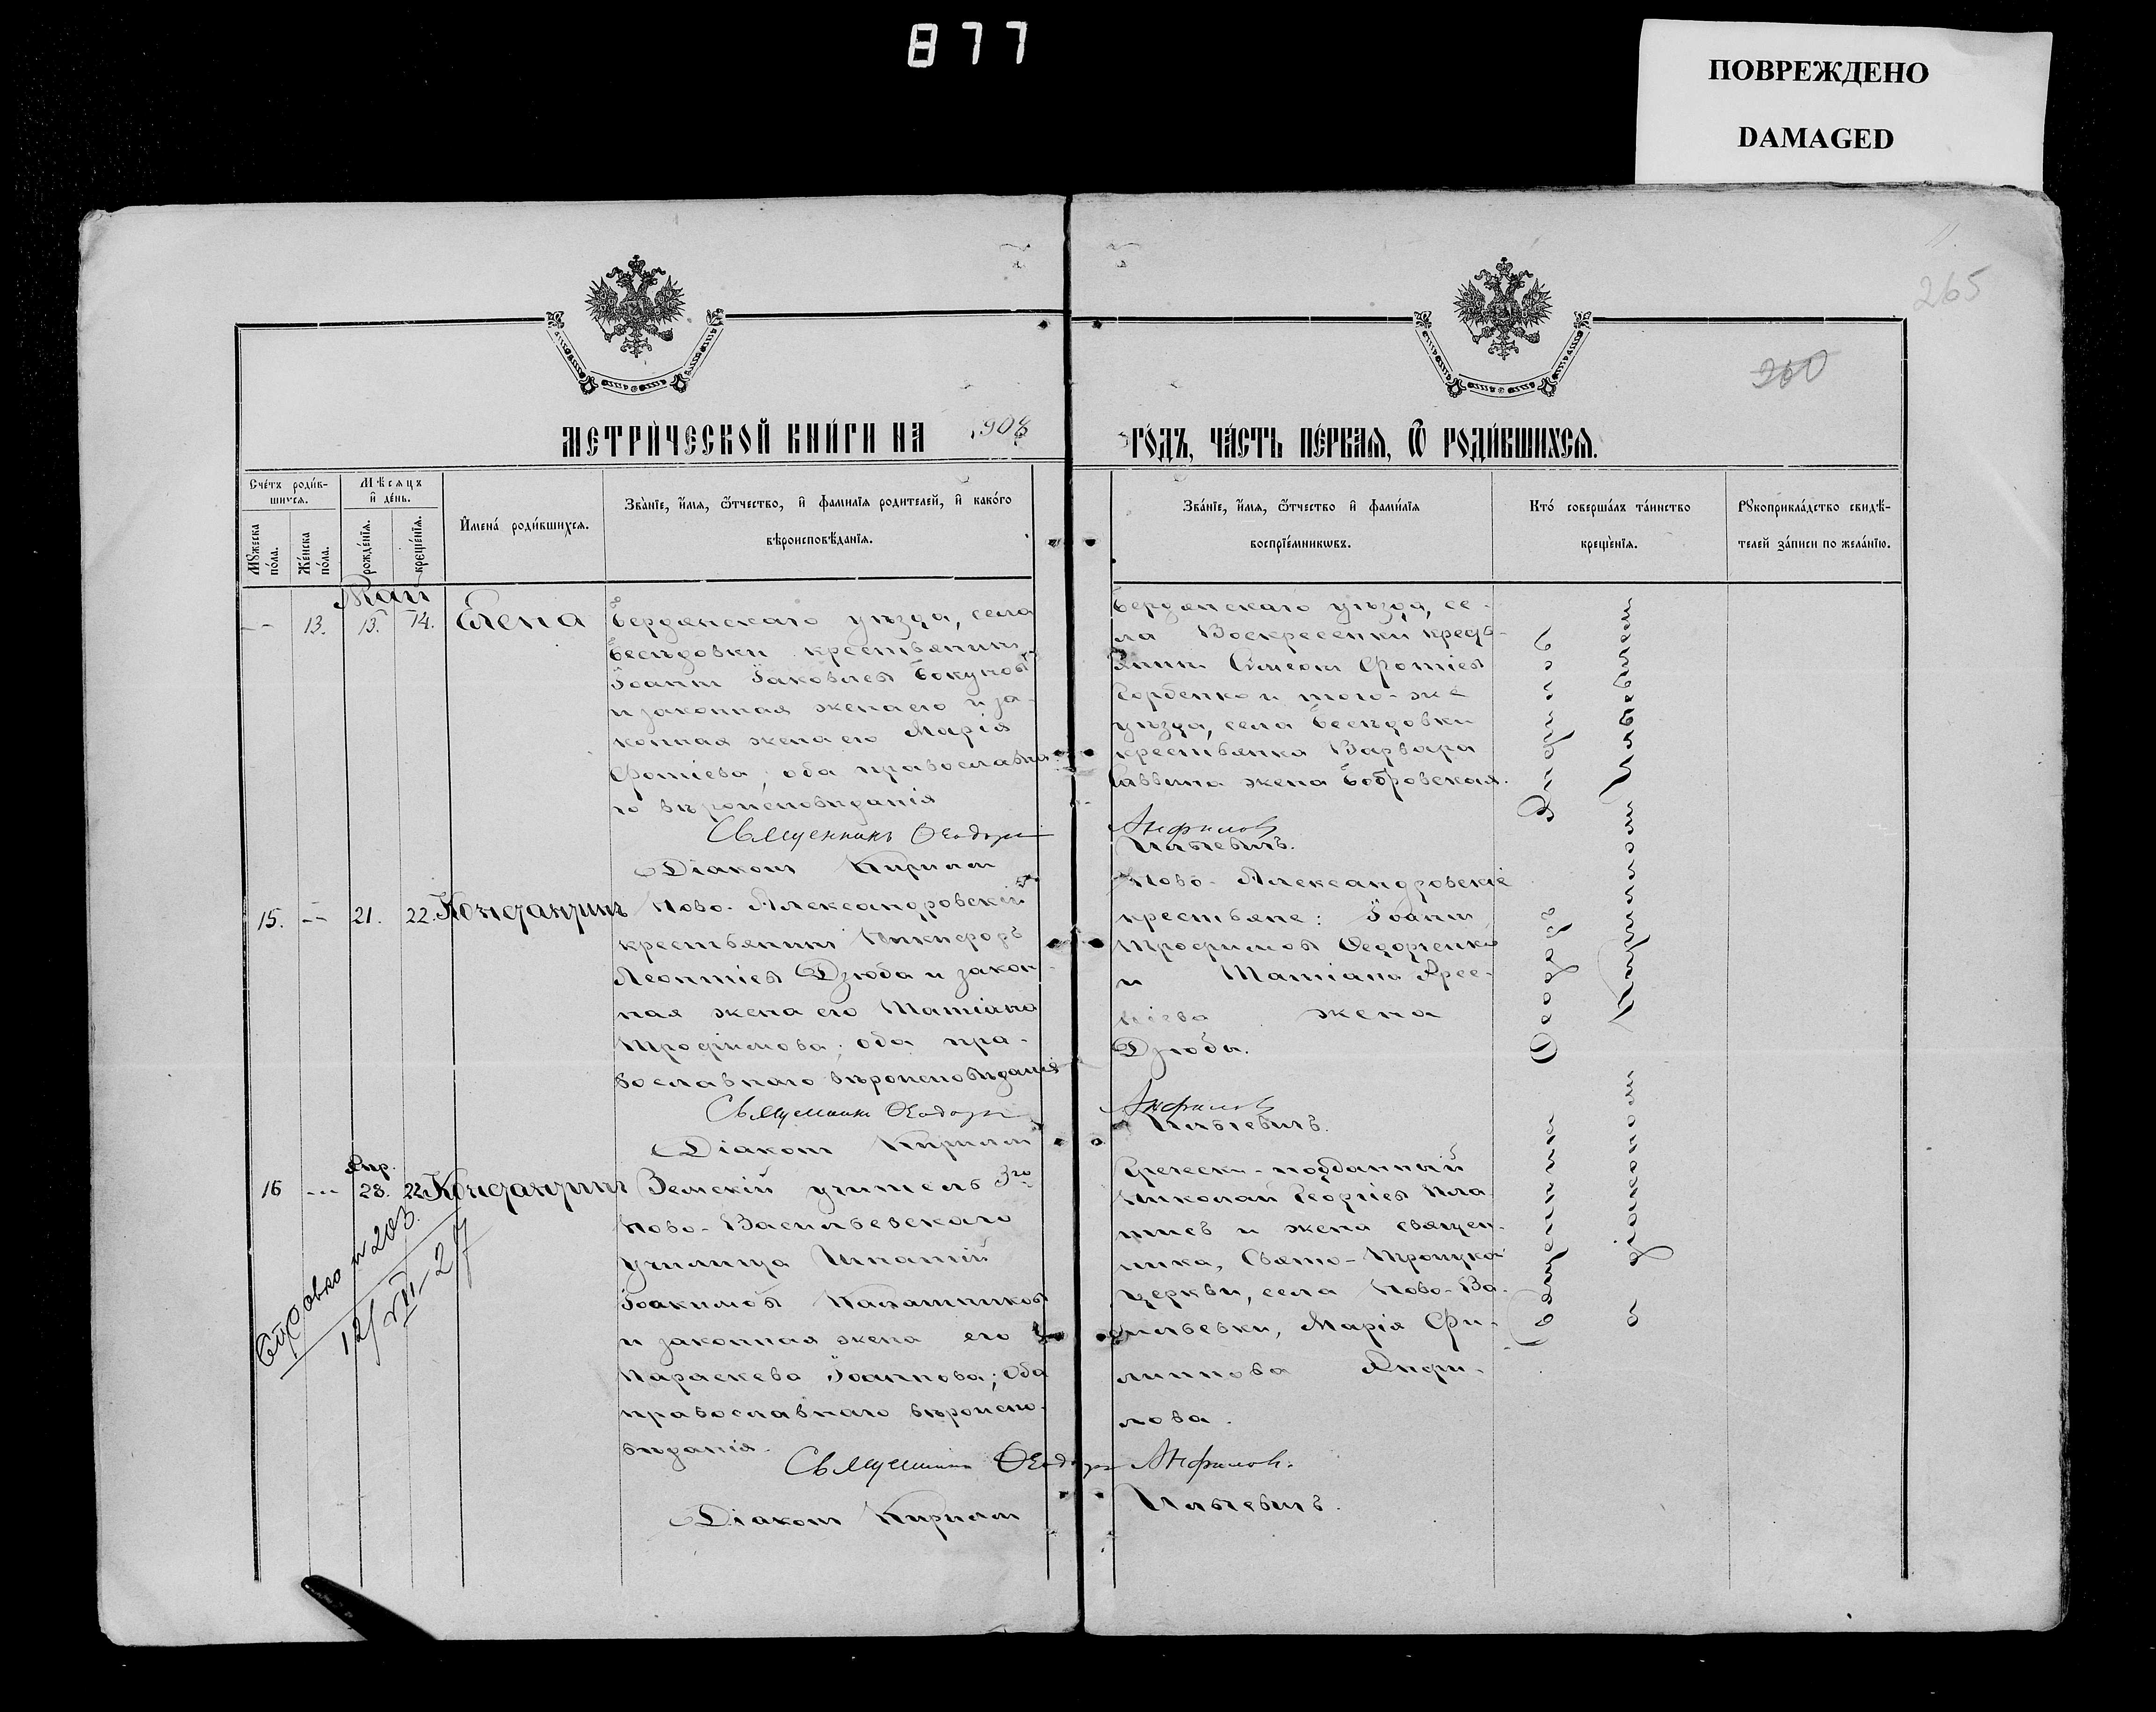 877
ПОВРЕЖДЕНО
DAMAGED
265
260
МЕТРИ́ЧЕСКОЙ КНИ́ГИ НА 1908
ГО́ДЪ, ЧА́СТЬ ПЕ́РВАЯ, Ѿ РОДИ́ВШИХСЯ.
Сче́тъ роди́в-
шихся.
Мꙋ́жеска
по́ла.
Же́нска
по́ла.
Мѣ́сяцъ
и҆ де́нь.
рожде́нїя.
креще́нїя.
И҆мена́ роди́вшихся.
Зва́нїе, и҆́мя, ѻ҆́тчество, и҆ фами́лїя роди́телей, и҆ како́го
вѣроисповѣ́данїя.
Зва́нїе, и҆́мя, ѻ҆́тчество и҆ фами́лїя
воспрїе́мникѡвъ.
Кто́ соверша́лъ та́инство
креще́нїя.
Рꙋкоприкла́дство свидѣ́-
телей за́писи по жела́нїю.
Май
-- 13. 13. 14. Елена
Бердянскаго уѣзда, села
Бесѣдовки крестьянинъ
Іоаннъ Іаковлевъ
и законная жена его и за-
конная жена его Марія
Фотіева; оба православна-
го вѣроисповѣданія
Священникъ Ѳеодоръ
Діаконъ Кириллъ
Бердянскаго уѣзда, се-
ла Воскресенки кресть-
янинъ Симеонъ Фотіевъ
Горбенко и того-же
уѣзда, села Бесѣдовки
крестьянка Варвара
Саввина жена Бобровская.
Анфиловъ
Ильевичъ.
15. -- 21. 22. Константинъ
Ново-Александровскій
крестьянинъ Никифоръ
Леонтіевъ Дзюба и закон-
ная жена его Татіана
Трофимова; оба пра-
вославнаго вѣроисповѣданія
Священникъ Ѳеодоръ
Діаконъ Кириллъ
Ново-Александровскіе
крестьяне: Іоаннъ
Трофимовъ Ѳедорченко
и Татіана Арсе-
ніева жена
Дзюбы.
Анфиловъ
Ильевичъ.
Апр.
16 --- 23. 22. Константинъ
Земскій учитель 3го
Ново-Васильевскаго
училища Игнатій
Іоакимовъ
и законная жена его
Параскева Іоаннова; оба
православнаго вѣроиспо-
вѣданія.
Священникъ Ѳеодоръ
Діаконъ Кириллъ
Греческо-подданный
Николай Георгіевъ
и жена священ-
ника, Свято-Троицкой
церкви, села Ново-Ва-
сильевки, Марія Фи-
липпова Анфи-
лова.
Анфиловъ.
Ильевичъ.
Священникъ Ѳеодоръ Анфиловъ
и діакономъ Кирилломъ Ильевичемъ
203.
12/VII-27